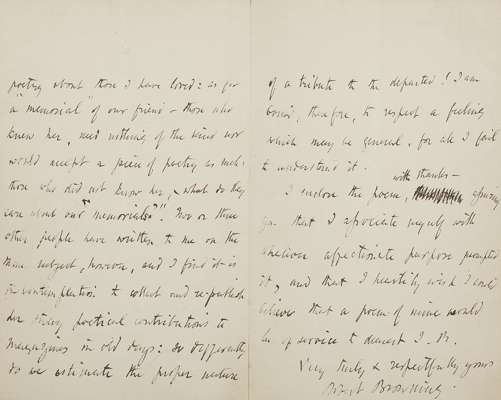 poetry about those I have loved: as for
a "memorial" of our friend - those who
knew her, need nothing of the kind nor
would accept a piece of poetry as such:
those who did not know her, what do they
care about our "memorials"? Two or three
other people have written to me on the
same subject, however, and I find it is
in contemplation to collect and re-publish
her poetical contributions to
Magazines in old days: so differently
do we estimate the proper nature
of a tribute to the departed! I am
bound, therefore, to respect a feeling
which may be general, for all I fail
to understand it.
with thanks -
I enclose the poem, assuring
you that I associate myself with
whatever affectionate purpose prompted
it, and that I heartily wish I could
believe that a poem of mine would
be of service to dearest I. B.
Very truly & respectfully yours
Robert Browning.